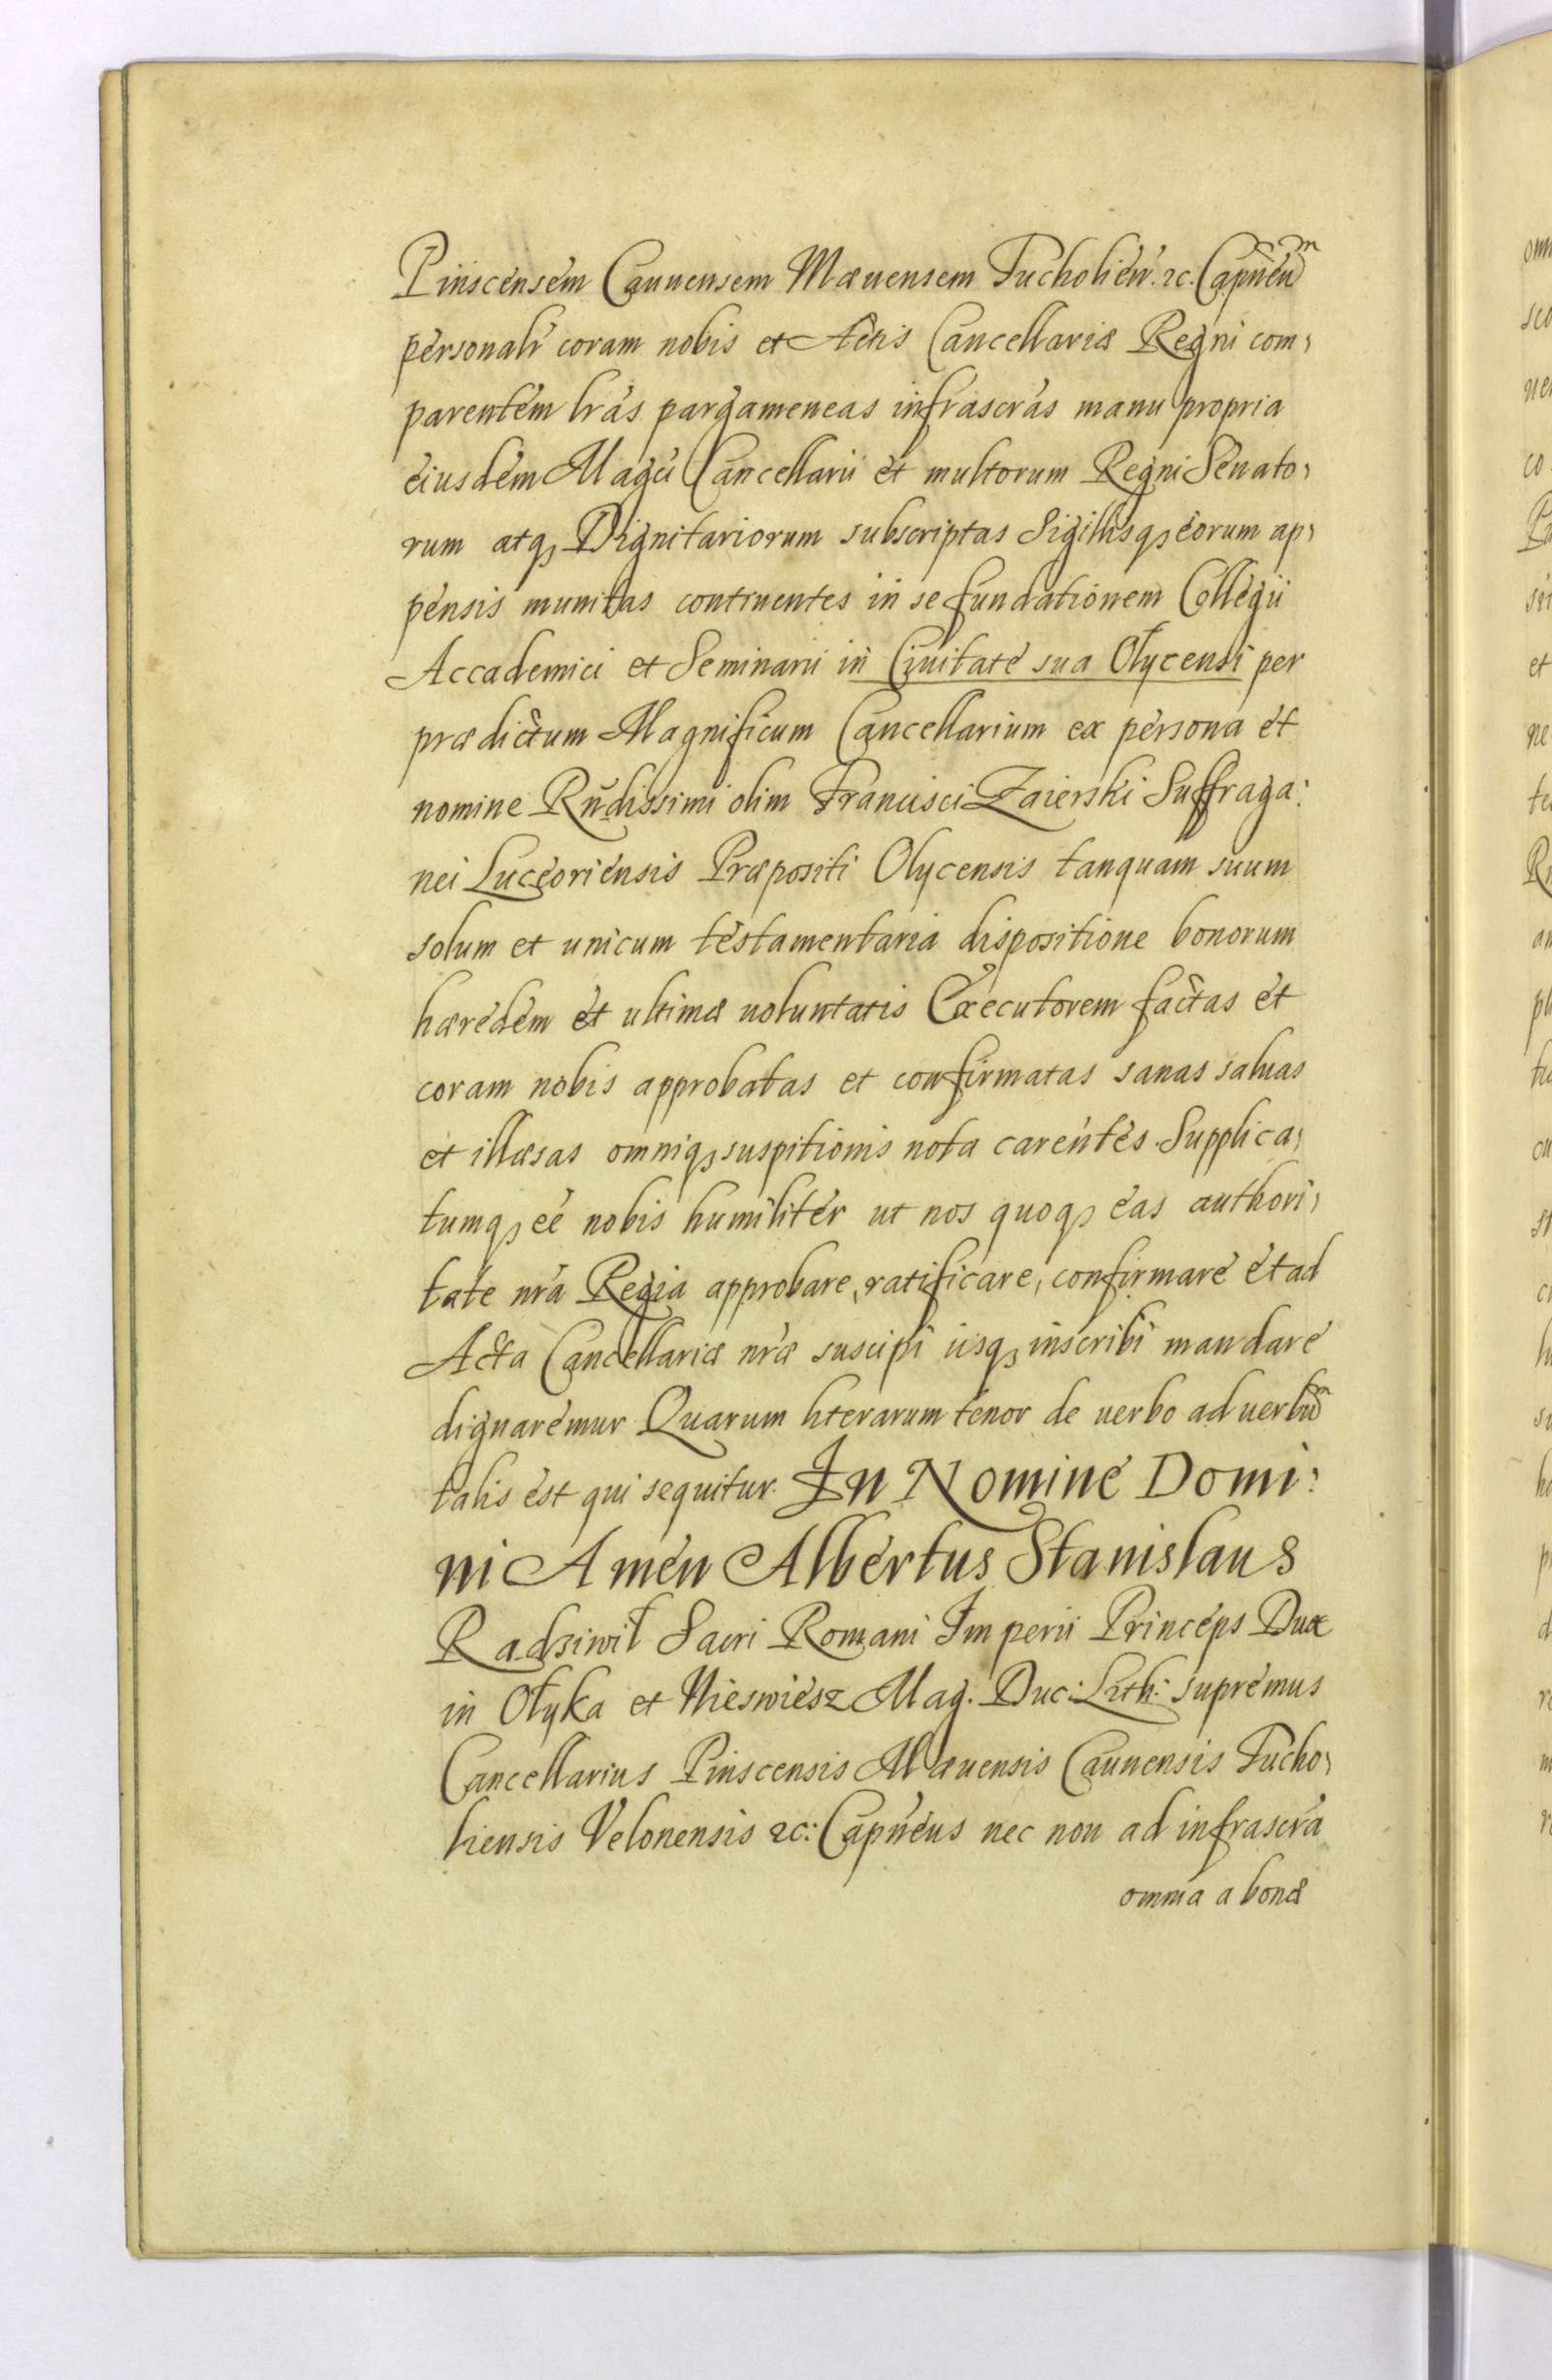 Pinscensem Caunensem Mæuensem Tucholien̄. ꝛc. Capn̄eum
personalr̄ coram nobis et Actis Cancellariæ Regni com,
parentem lr̄as pargameneas infrascr̄as manu propria
eiusdem Magci Cancellarii et multorum Regni Senato,
rum atq₃ Dignitariorum subscriptas Sigillisq₃ eorum ap,
pensis munitas continentes in se fundationem Collegii
Accademici et Seminarii in Ciuitate sua Ołycensi per
prædictum Magnificum Cancellarium ex persona et
nomine Rn̄dissimi olim Francisci Zaierski Suffraga:
nei Luceoriensis Præpositi Olycensis tanquam suum
solum et unicum testamentaria dispositione bonorum
hæredem et ultimæ uoluntatis Executorem factas et
coram nobis approbatas et confirmatas sanas saluas
et illæsas omniq₃ suspitionis nota carentes. Supplica,
tumq₃ eē nobis humiliter ut nos quoq₃ eas authori,
tate nr̄a Regia approbare, ratificare, confirmare et ad
Acta Cancellariæ nr̄æ suscipi iisq₃ inscribi mandare
dignaremur Quarum literarum tenor de uerbo ad uerbum
talis est qui sequitur. In Nomine Domi:
ni Amen Albertus Stanislaus
Radziwił Sacri Romani Imperii Princeps Dux
in Ołyka et Nieswiesz Mag. Duc: Lith: supremus
Cancellarius Pinscensis Mæuensis Caunensis Tucho,
liensis Velonensis ꝛc: Capn̄eus nec non ad infrascr̄a
omnia a bonæ